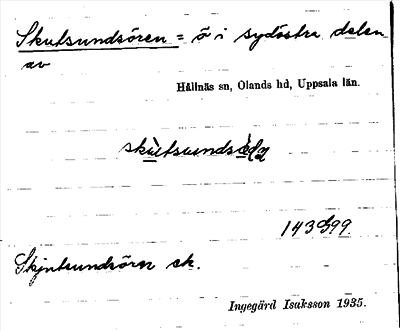 Skutsundsören = ö i sydöstra delen
av
Hållnäs sn, Olands hd, Uppsala län.
Skjutsundsören ek.
Ingegärd Isaksson 1935.